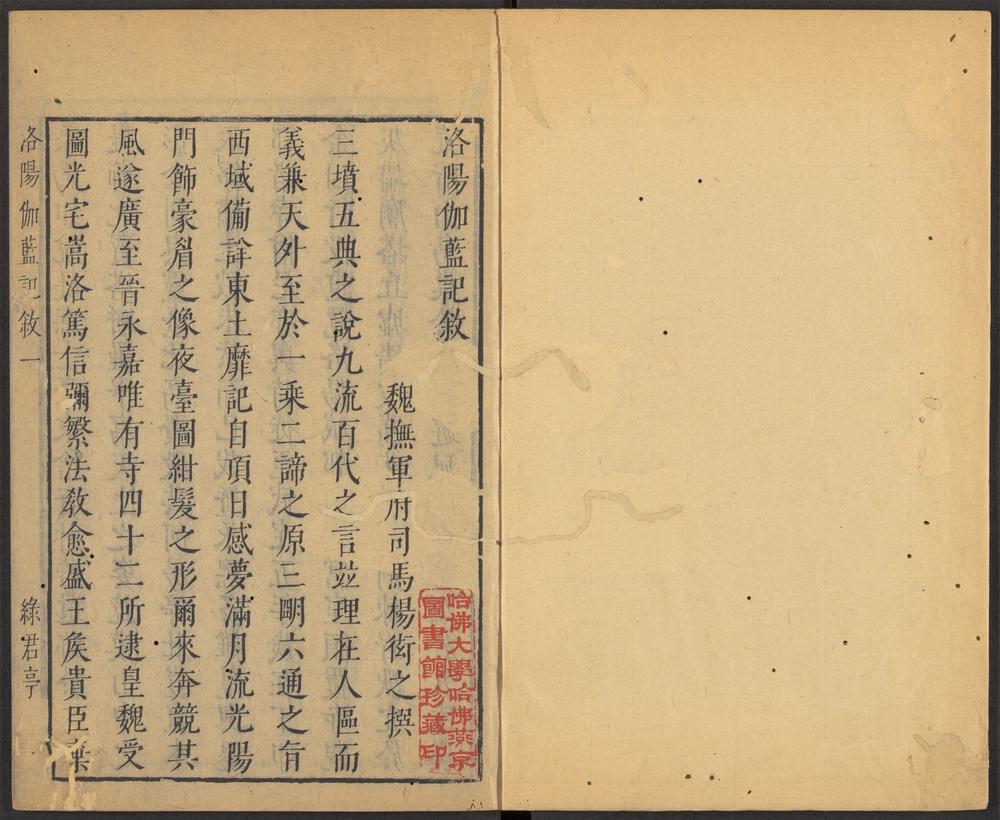 洛陽伽藍記敘
魏撫軍府司馬楊衒之撰
三墳五典之說九流百代之言竝理在人區而
義兼天外至於一乘二諦之原三明六通之旨
西域備詳東土靡記自頂日感夢滿月流光陽
門飾豪眉之像夜臺圖紺髮之形爾來奔競其
風遂廣至晉永嘉唯有寺四十二所逮皇魏受
圖光宅嵩洛篤信彌繁法敎愈盛王矦貴臣棄
洛陽伽藍記敘 一
綠君亭
哈佛大學哈佛燕京
圖書館珍藏印